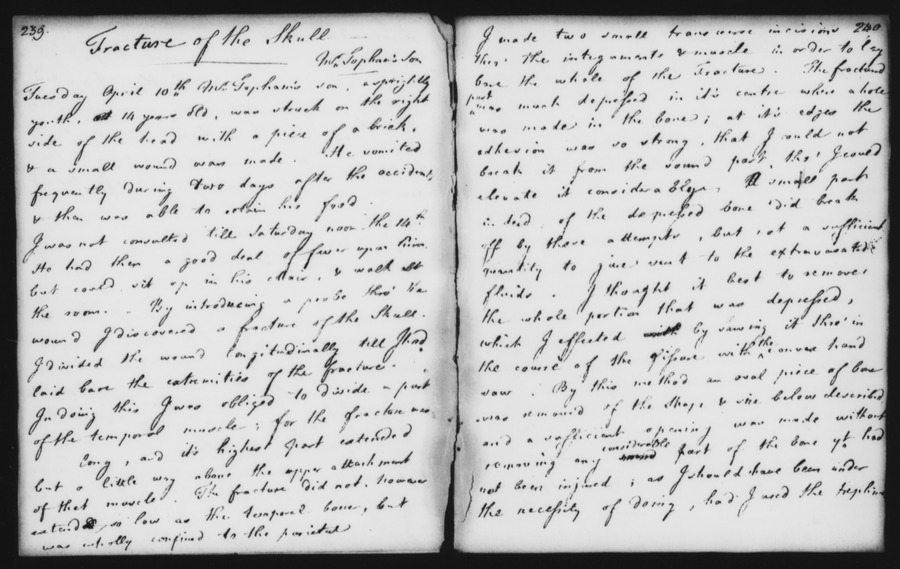 239.
Fracture of the Skull
Mr. Topham's Son
Tuesday April 10th Mr. Topham's son, a sprightly
youth, at 14 years old, was struck on the right
side of the head with a piece of a brick,
& a small wound was made. He vomited
frequently during two days after the accident,
& then was able to retain his food.
I was not consulted till Saturday noon the 14th.
He had then a good deal of fever upon him,
but could sit up in his chair, & walk abt
the room. - By introducing a probe thro' the
wound I discovered a fracture of the Skull.
I divided the wound longitudinally till I had
laid bare the extremities of the fracture.
In doing this I was obliged to divide a part
of the temporal muscle; for the fracture was
long, and it's highest part extended
but a little way above the upper attachment
of that muscle. The fracture did not, however
extend so low as the temporal bone, but
was wholly confined to the parietal
240
I made two small transverse incisions
thro' the integuments & muscle in order to lay
bare the whole of the Fracture. The fractured
part was much depressed in it's centre where a hole
was made in the bone; at it's edges the
adhesion was so strong, that I could not
break it from the sound part, tho' I could
elevate it considerably. A small part
indeed of the depressed bone did break
off by these attempts, but not a sufficient
quantity to give vent to the extravasated
fluids. I thought it best to remove
the whole portion that was depressed,
which I effected with by sawing it thro' in
the course of the fissure with the convex hand
saw. By this method an oval piece of bone
was removed of the shape & size below described
and a sufficient opening was made without
removing any considerable sound part of the bone yt had
not been injured; as I should have been under
the necessity of doing, had I used the trephine